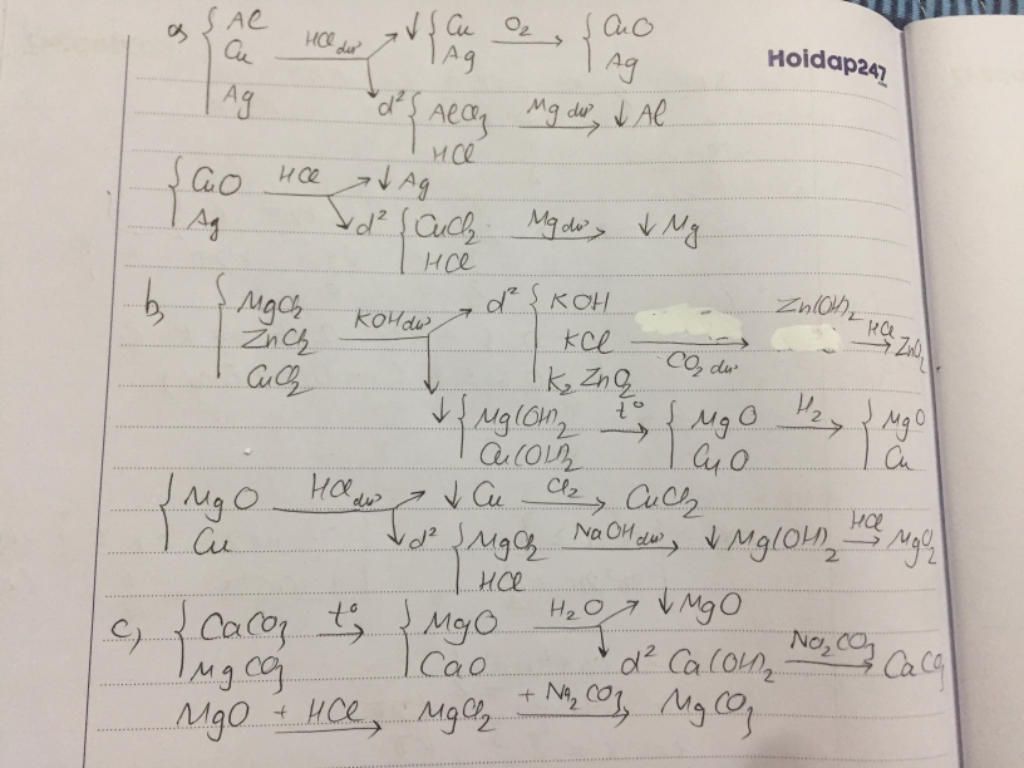 a, { Al Cu Ag HCl dư → ↓ { Cu Ag O2 → { CuO Ag
Hoidap247
d² { AlCl3 HCl Mg dư → ↓ Al
{ CuO Ag HCl → ↓ Ag
d² { CuCl2 HCl Mg dư → ↓ Mg
b, { MgCl2 ZnCl2 CuCl2 KOH dư → d² { KOH KCl K2ZnO2 CO2 dư → Zn(OH)2 HCl →
↓ { Mg(OH)2 Cu(OH)2 t° → { MgO CuO H2 → { MgO Cu
{ MgO Cu HCl dư → ↓ Cu Cl2 → CuCl2
d² { MgCl2 HCl NaOH dư → ↓ Mg(OH)2 HCl →
c, { CaCO3 MgCO3 t° → { MgO CaO H2O → ↓ MgO
d² Ca(OH)2 Na2CO3 → CaCO3
MgO + HCl → MgCl2 + Na2CO3 → MgCO3